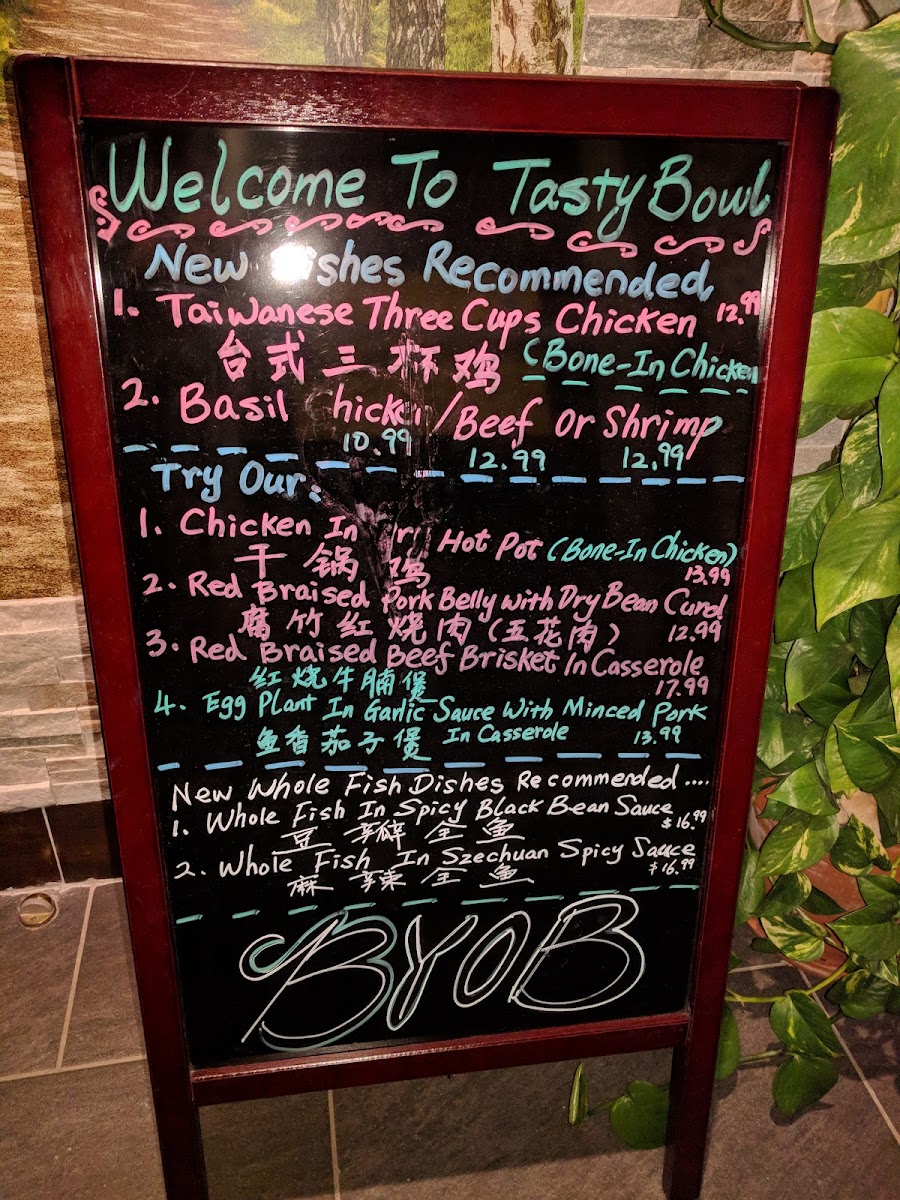 Welcome To Tasty Bowl
New Dishes Recommended,
1. Taiwanese Three Cups Chicken 12.99
台式三杯鸡 (Bone-In Chicken
2. Basil Chicken/Beef or Shrimp
10.99 12.99 12.99
Try Our:
1. Chicken In Hot Pot (Bone-In Chicken)
干锅鸡 13.99
2. Red Braised Pork Belly with Dry Bean Curd
腐竹红烧肉(五花肉) 12.99
3. Red Braised Beef Brisket In Casserole
红烧牛腩煲 17.99
4. Egg Plant In Garlic Sauce With Minced Pork
鱼香茄子煲 In Casserole 13.99
New Whole Fish Dishes Recommended....
1. Whole Fish In Spicy Black Bean Sauce
豆瓣全鱼 $16.99
2. Whole Fish In Szechuan Spicy Sauce
麻辣全鱼 $16.99
BYOB